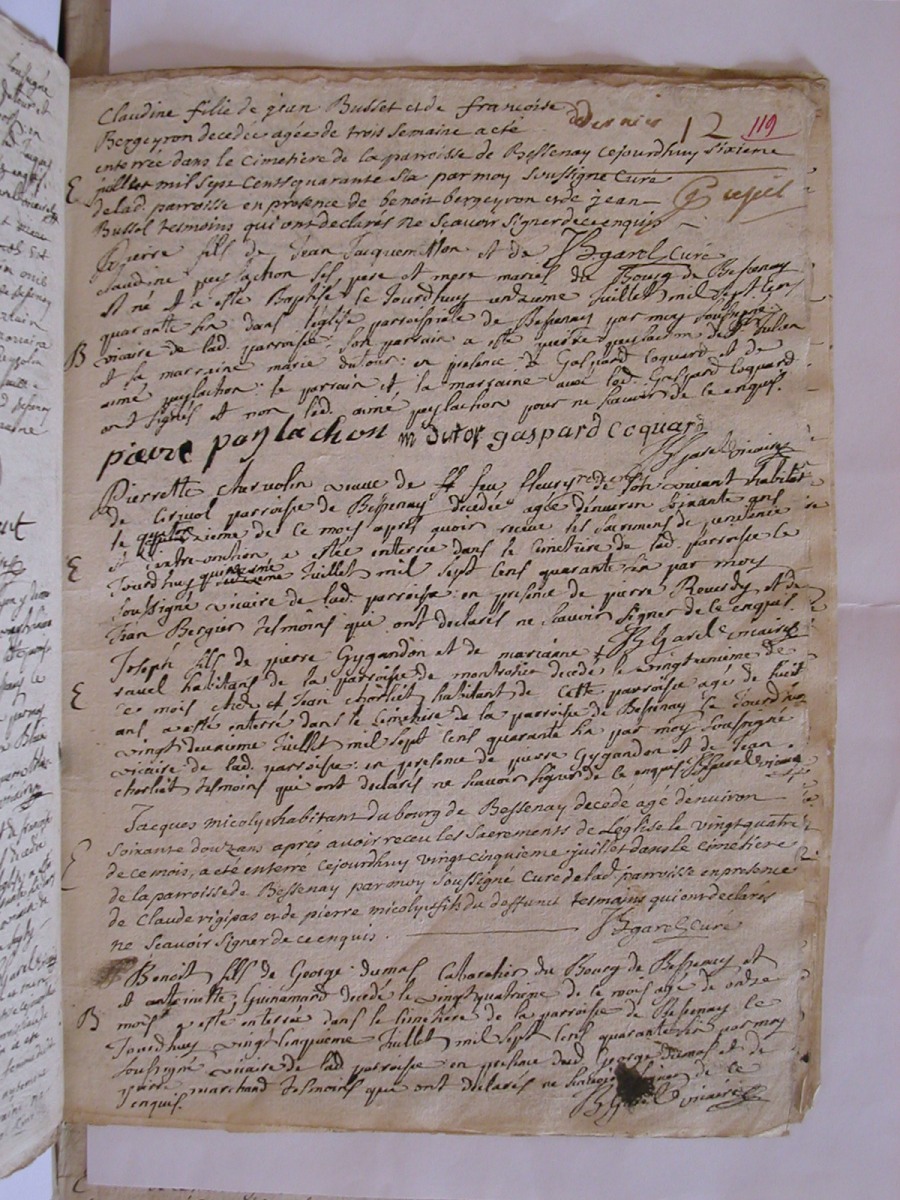 Claudine fille de jean Busset et de francoise
Bergeyron decedée agée de trois semaine a eté
12 119
enterrée dans le cimetiére de la parroisse de Bessenay cejourdhuy sixieme
E juillet mil sept cents quarante six par moy soussigné curé
de lad. parroisse en presence de benoit bergeyron et de jean
Busset tesmoins qui ont declarés ne scavoir signer de ce enquis
JB garel Curé
pierre fils de Jean Jacquemetton et de
claudine puylachon ses pere et mere mariés du Bourg de Bessenay
est né et a esté Baptisé ce Jourdhuy onzieme Juillet mil sept cens
quarante six dans l'eglise parroissiale de Bessenay par moy soussigné
B vicaire de lad. parroisse: son parrain a esté pierre puylachon de St Julien
et sa marraine marie dutour: en presence de Gaspard Coquard et de
aimé puylachon: le parrain et la marraine avec led. Gaspard Coquard
ont signés et non led. aimé puylachon pour ne scavoir de ce enquis.
pierre puylachon m dutor gaspard coquard
JB garel vicaire
Pierrette chervolin veuve de feu fleury de son vivant habitant
de parroisse de Bessenay decedée agée denviron soixante ans
le quatorzieme de ce mois apres avoir receue les sacremens de penitence
E et d'extre-onction, a estée enterrée dans le cimetiere de lad. parroisse ce
Jourdhuy quinzieme Juillet mil sept cens quarante six par moy
soussigné vicaire de lad. parroisse en presence de pierre Rourdy et de
Jean Bergier tesmoins qui ont declarés ne scavoir signer de ce enquis.
JB garel vicaire
Joseph fils de pierre Gygandon et de marianne
E ravel habitans de la parroisse de montrotier decedé le vingt unieme de
ce mois chez Jean chorliet habitant de cette parroisse age de huit
ans a esté enterré dans le cimetiere de la parroisse de Bessenay ce Jourdhuy
vingt deuxieme Juillet mil sept cens quarante six par moy soussigné
vicaire de lad. parroisse: en presence de pierre Gygandon et de Jean
chorliet tesmoins qui ont declarés ne scavoir signer de ce enquis JB garel vicaire
Jacques micoly habitant du bourg de Bessenay decedé agé denviron
E soixante douze ans aprés avoir receu les sacrements de Leglise le vingt quatre
de ce mois, a eté enterré cejourdhuy vingt cinquieme juillet dans le cimetiére
de la parroisse de Bessenay par moy soussigné curé de lad. parroisse en presence
de Claude rigipas et de pierre micoly fils du deffunct tesmoins qui ont declarés
ne scavoir signer de ce enquis. JB garel Curé
Benoit fils de George dumas Cabaretier du Bourg de Bessenay et
et antoinette Guinamard decedé le vingt quatrieme de ce mois age de onze
B mois a esté enterré dans le cimetiere de la parroisse de Bessenay ce
Jourdhuy vingt cinquieme Juillet mil sept cens quarante six par moy
soussigné vicaire de lad. parroisse en presence dud. George dumas et de
pierre marchand tesmoins qui ont declarés ne de ce
enquis. JB garel vicaire